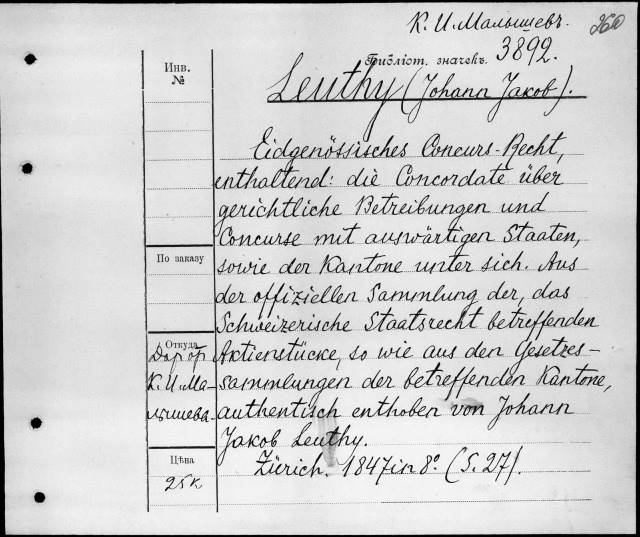 К. И. Малышевъ.
260
Библіот. значекъ. 3892.
Инв. №
Leuthy (Johann Jakob).
Eidgenössisches Concurs-Recht,
enthaltend: die Concordate über
gerichtliche Betreibungen und
Concurse mit auswärtigen Staaten,
sowie der Kantone unter sich. Aus
der offiziellen Sammlung der, das
Schweizerische Staatsrecht betreffenden
Aktienstücke, so wie aus den Gesetzes-
sammlungen der betreffenden Kantone,
authentisch enthoben von Johann
Jakob Leuthy.
Zürich. 1847 in 8º. (S. 27).
По заказу
Откуда
Даръ отъ
К. И. Ма-
лышева.
Цѣна
25 к